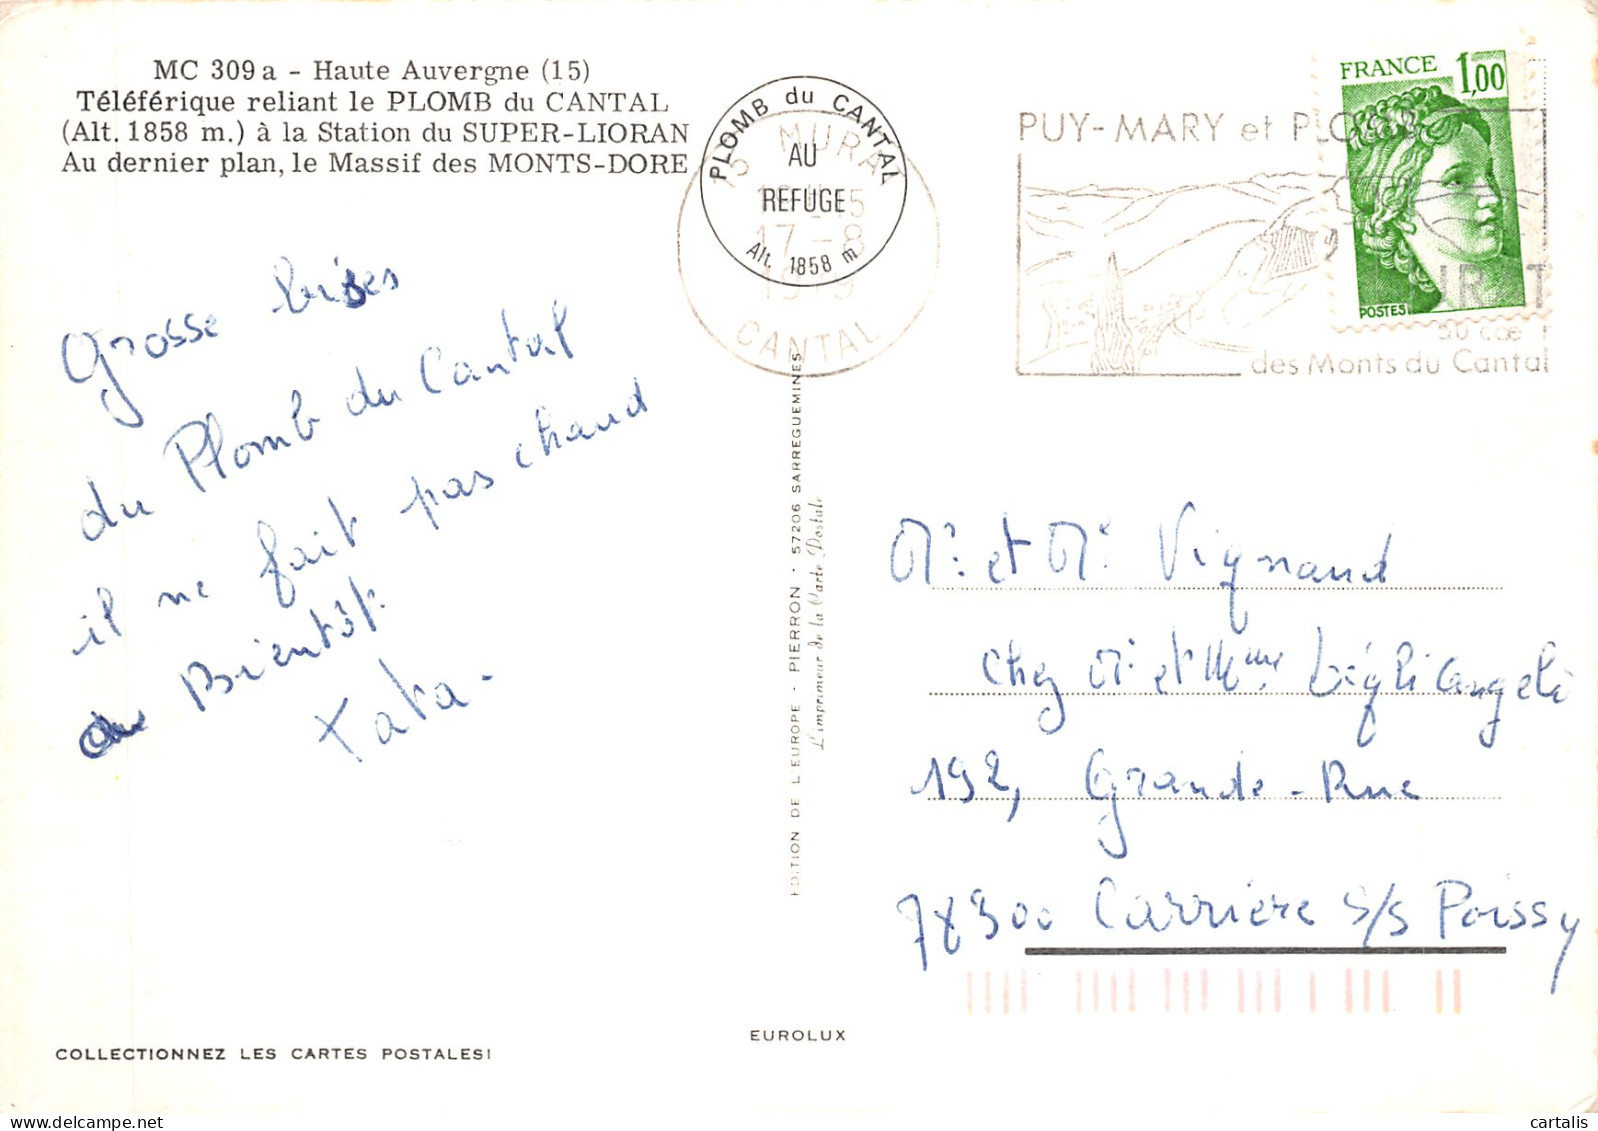 MC 309 a - Haute Auvergne (15)
Téléférique reliant le PLOMB du CANTAL
(Alt. 1858 m.) à la Station du SUPER-LIORAN
Au dernier plan, le Massif des MONTS-DORE
Grosse bises
du Plomb du Cantal
il ne fait pas chaud
Bientôt.
Tata-
COLLECTIONNEZ LES CARTES POSTALES!
PLOMB du CANTAL
AU
REFUGE
Alt. 1858 m
15 MURAT
17-8
1979
CANTAL
EDITION DE L'EUROPE - PIERRON - 57206 SARREGUEMINES
L'imprimeur de la Carte Postale
EUROLUX
PUY-MARY et PLO
MURAT
au cœ
des Monts du Cantal
FRANCE 1,00
POSTES
Mr. et Mr. Vignaud
chez Mr et Mme Digliangeli
192, Grande-Rue
78300 Carrière s/s Poissy
cartalis
delcampe.net